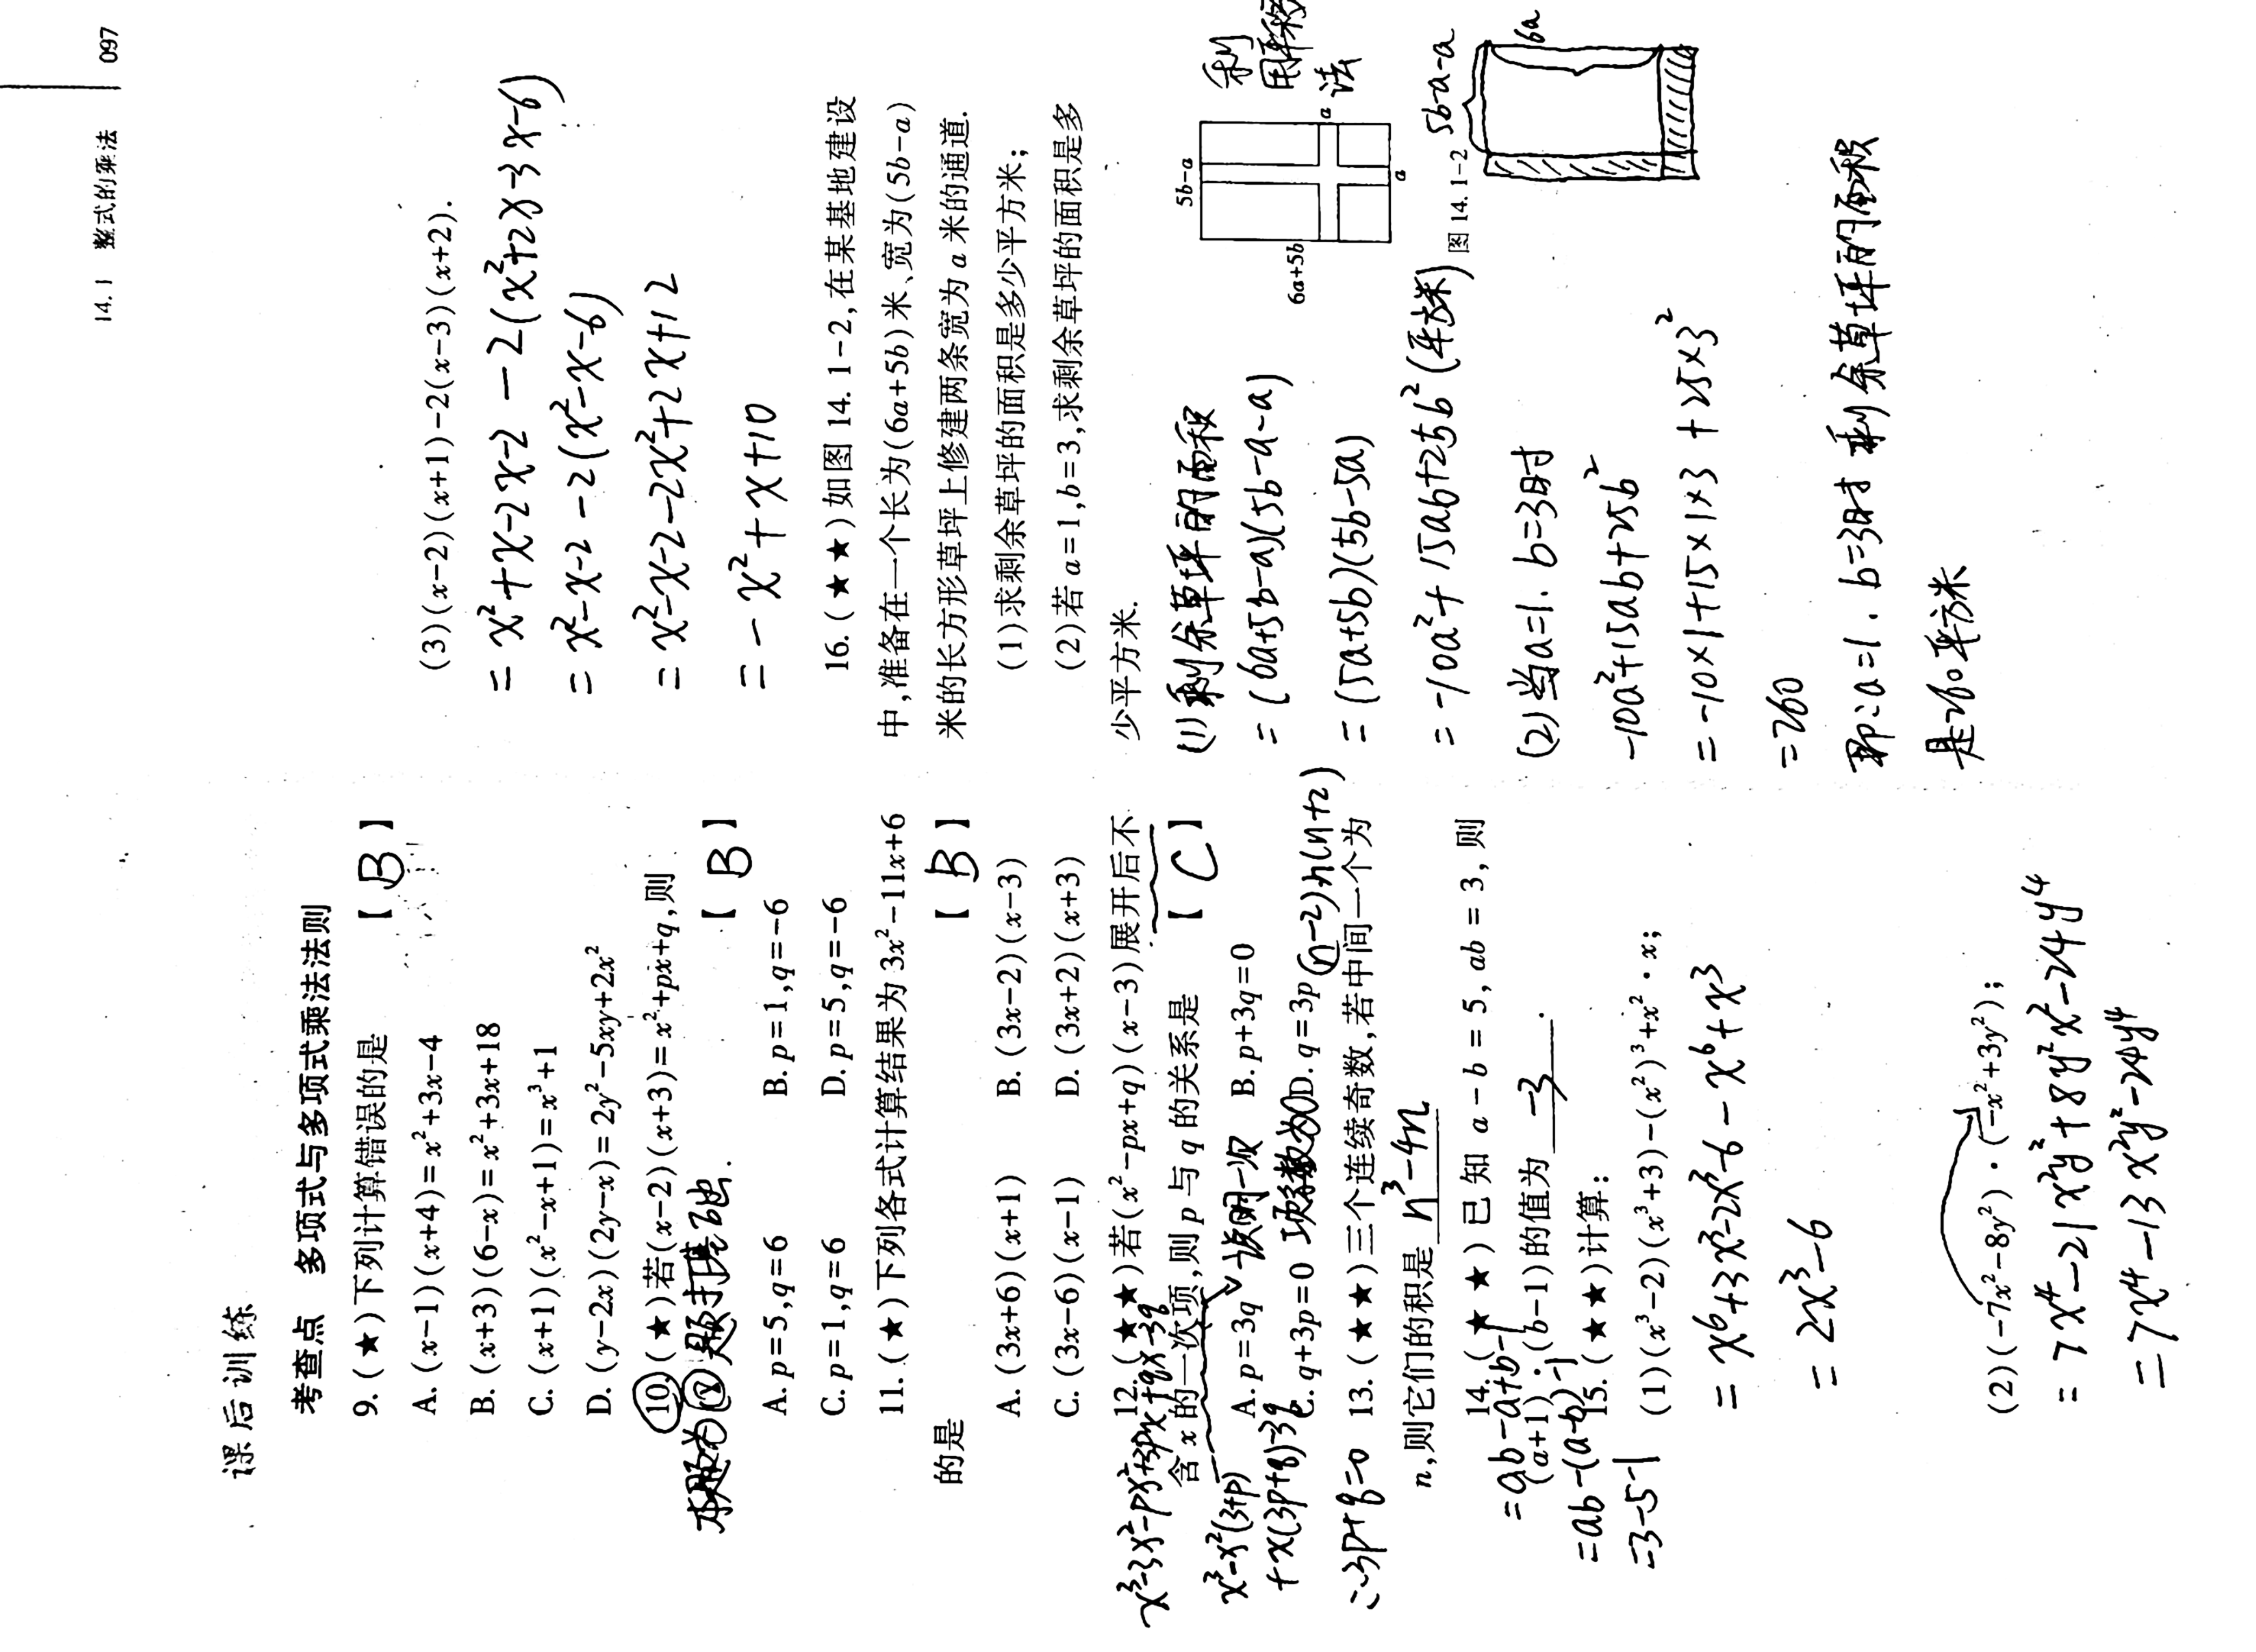 14.1 整式的乘法 097
课后训练
考查点 多项式与多项式乘法法则
9.(★)下列计算错误的是 【 B 】
A.(x-1)(x+4)=x²+3x-4
B.(x+3)(6-x)=x²+3x+18
C.(x+1)(x²-x+1)=x³+1
D.(y-2x)(2y-x)=2y²-5xy+2x²
10.(★)若(x-2)(x+3)=x²+px+q,则 【 B 】
本题为 12 题打基础.
A.p=5,q=6 B.p=1,q=-6
C.p=1,q=6 D.p=5,q=-6
11.(★)下列各式计算结果为3x²-11x+6
的是 【 B 】
A.(3x+6)(x+1) B.(3x-2)(x-3)
C.(3x-6)(x-1) D.(3x+2)(x+3)
12.(★★)若(x²-px+q)(x-3)展开后不
含x的一次项,则p与q的关系是 【 C 】
x³-3x²-px²+3px+qx-3q
x³-x²(3+p)
+x(3p+q)-3q
∴3p+q=0
说明一次
项系数为0
A.p=3q B.p+3q=0
C.q+3p=0 D.q=3p
(n-2)n(n+2)
13.(★★)三个连续奇数,若中间一个为
n,则它们的积是 n³-4n
14.(★★)已知a-b=5,ab=3,则
(a+1)·(b-1)的值为 -3 .
=ab-a+b-1
=ab-(a-b)-1
=3-5-1
15.(★★)计算:
(1)(x³-2)(x³+3)-(x²)³+x²·x;
=x⁶+3x³-2x³-6-x⁶+x³
=2x³-6
(2)(-7x²-8y²)·(-x²+3y²);
=7x⁴-21x²y²+8y²x²-24y⁴
=7x⁴-13x²y²-24y⁴
(3)(x-2)(x+1)-2(x-3)(x+2).
=x²+x-2x-2-2(x²+2x-3x-6)
=x²-x-2-2(x²-x-6)
=x²-x-2-2x²+2x+12
=-x²+x+10
16.(★★)如图14.1-2,在某基地建设
中,准备在一个长为(6a+5b)米、宽为(5b-a)
米的长方形草坪上修建两条宽为a米的通道.
(1)求剩余草坪的面积是多少平方米;
(2)若a=1,b=3,求剩余草坪的面积是多
少平方米.
5b-a
6a+5b
a
a
图14.1-2
利
用平移
法
5b-a-a
6a
(1)剩余草坪的面积
=(6a+5b-a)(5b-a-a)
=(5a+5b)(5b-5a)
=-10a²+15ab+25b²(平方米)
(2)当a=1.b=3时
-10a²+15ab+25b²
=-10×1+15×1×3+25×3²
=260
即:a=1.b=3时剩余草坪的面积
是260平方米